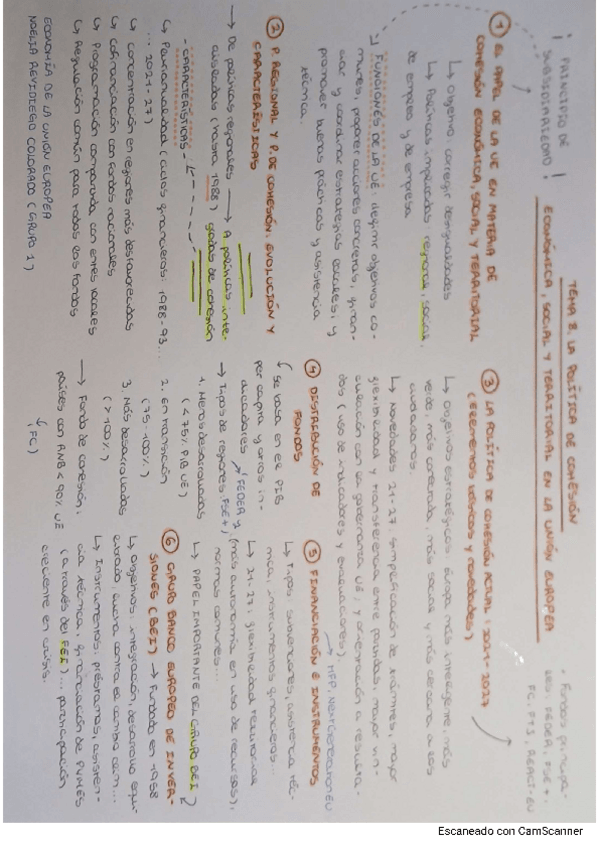 TEMA 8. LA POLÍTICA DE COHESIÓN
ECONÓMICA, SOCIAL Y TERRITORIAL EN LA UNIÓN EUROPEA
¡ PRINCIPIO DE
SUBSIDIARIEDAD !
• Fondos principa-
les: FEDER, FSE+,
FC, FTJ, REACT-EU
① EL PAPEL DE LA UE EN MATERIA DE
COHESIÓN ECONÓMICA, SOCIAL Y TERRITORIAL
↳ Objetivo: corregir desigualdades
↳ Políticas implicadas: regional, social,
de empleo y de empresa
FUNCIONES DE LA UE: definir objetivos co-
munes, proponer acciones concretas, finan-
ciar y coordinar estrategias locales, y
promover buenas prácticas y asistencia
técnica.
② P. REGIONAL Y P. DE COHESIÓN: EVOLUCIÓN Y
CARACTERÍSTICAS
→ De políticas regionales → A políticas inte-
aisladas (hasta 1988) gradas de cohesión
- CARACTERÍSTICAS -
↳ Plurianualidad (ciclos financieros: 1988-93...
... 2021-27)
↳ Concentración en regiones más desfavorecidas
↳ Cofinanciación con fondos nacionales
↳ Programación compartida con entes locales
↳ Regulación común para todos los fondos
ECONOMÍA DE LA UNIÓN EUROPEA
NOELIA REVIDIEGO COLORADO (GRUPO 1)
③ LA POLÍTICA DE COHESIÓN ACTUAL: 2021-2027
(ELEMENTOS BÁSICOS Y NOVEDADES)
↳ Objetivos estratégicos: Europa más inteligente, más
verde, más conectada, más social y más cercana a los
ciudadanos.
↳ Novedades 21-27: simplificación de trámites, mayor
flexibilidad y transferencia entre fondos, mayor vin-
culación con la gobernanza UE, y orientación a resulta-
dos (uso de indicadores y evaluaciones).
④ DISTRIBUCIÓN DE
FONDOS
↳ Se basa en el PIB
per cápita y otros in-
dicadores
→ Tipos de regiones: (FEDER y FSE+)
1. Menos desarrolladas
(<75% PIB UE)
2. En transición
(75-100%)
3. Más desarrolladas
(>100%)
→ Fondo de cohesión:
países con RNB <90% UE
(FC)
⑤ FINANCIACIÓN E INSTRUMENTOS
MFP, NEXTGENERATIONEU
↳ Tipos: subvenciones, asistencia téc-
nica, instrumentos financieros...
↳ 21-27: flexibilidad
(más autonomía en uso de recursos),
normas comunes...
↳ PAPEL IMPORTANTE DEL GRUPO BEI
⑥ GRUPO BANCO EUROPEO DE INVER-
SIONES (BEI) → Fundado en 1958
↳ Objetivos: integración, desarrollo equi-
librado, lucha contra el cambio clim...
↳ Instrumentos: préstamos, asisten-
cia técnica, financiación de PYMES
(a través del FEI)... participación
creciente en crisis.
Escaneado con CamScanner